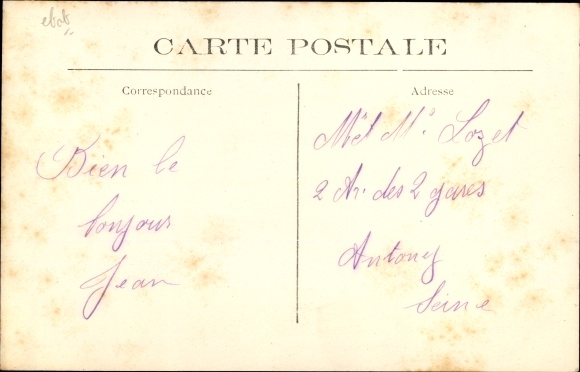 CARTE POSTALE
Correspondance
Bien le
bonjour
Jean
Adresse
Mr et Me Lozet
2 Av. des 2 gares
Antony
Seine